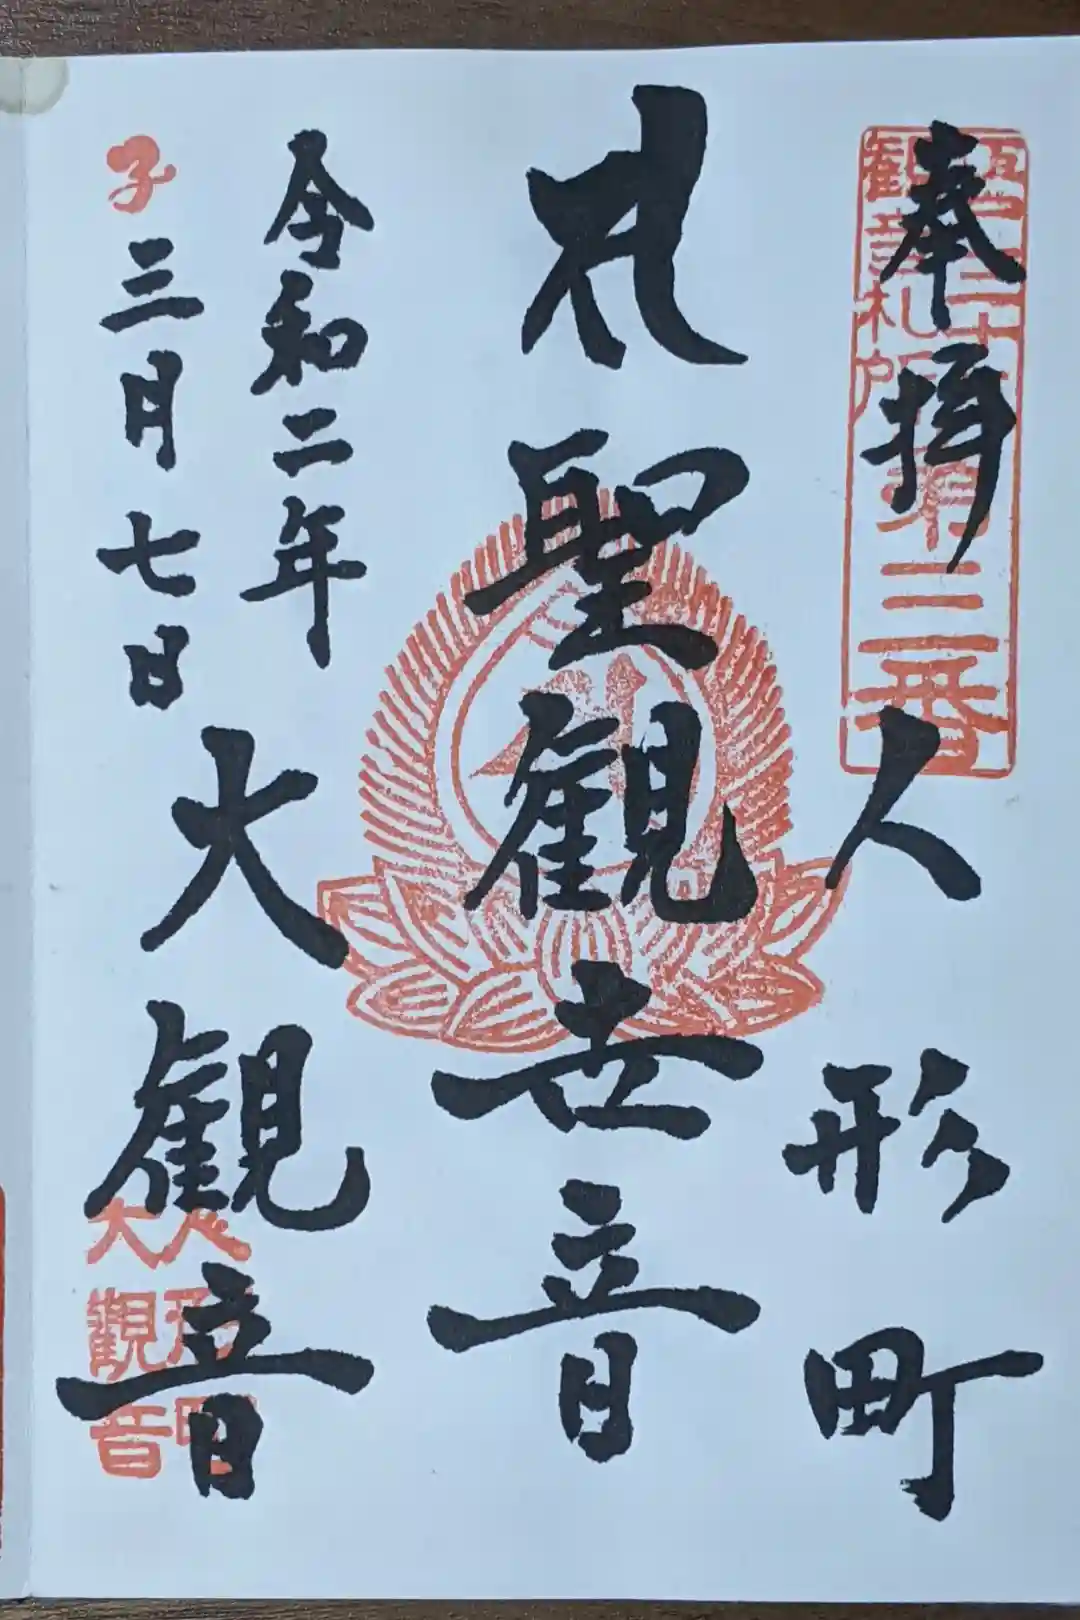 奉拝
人形町
聖観世音
令和二年
子
三月七日
大観音
観音札所第三番
人形町
大観音